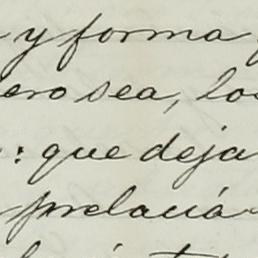 y forma
ero sea, los
: que deja
prelaciá